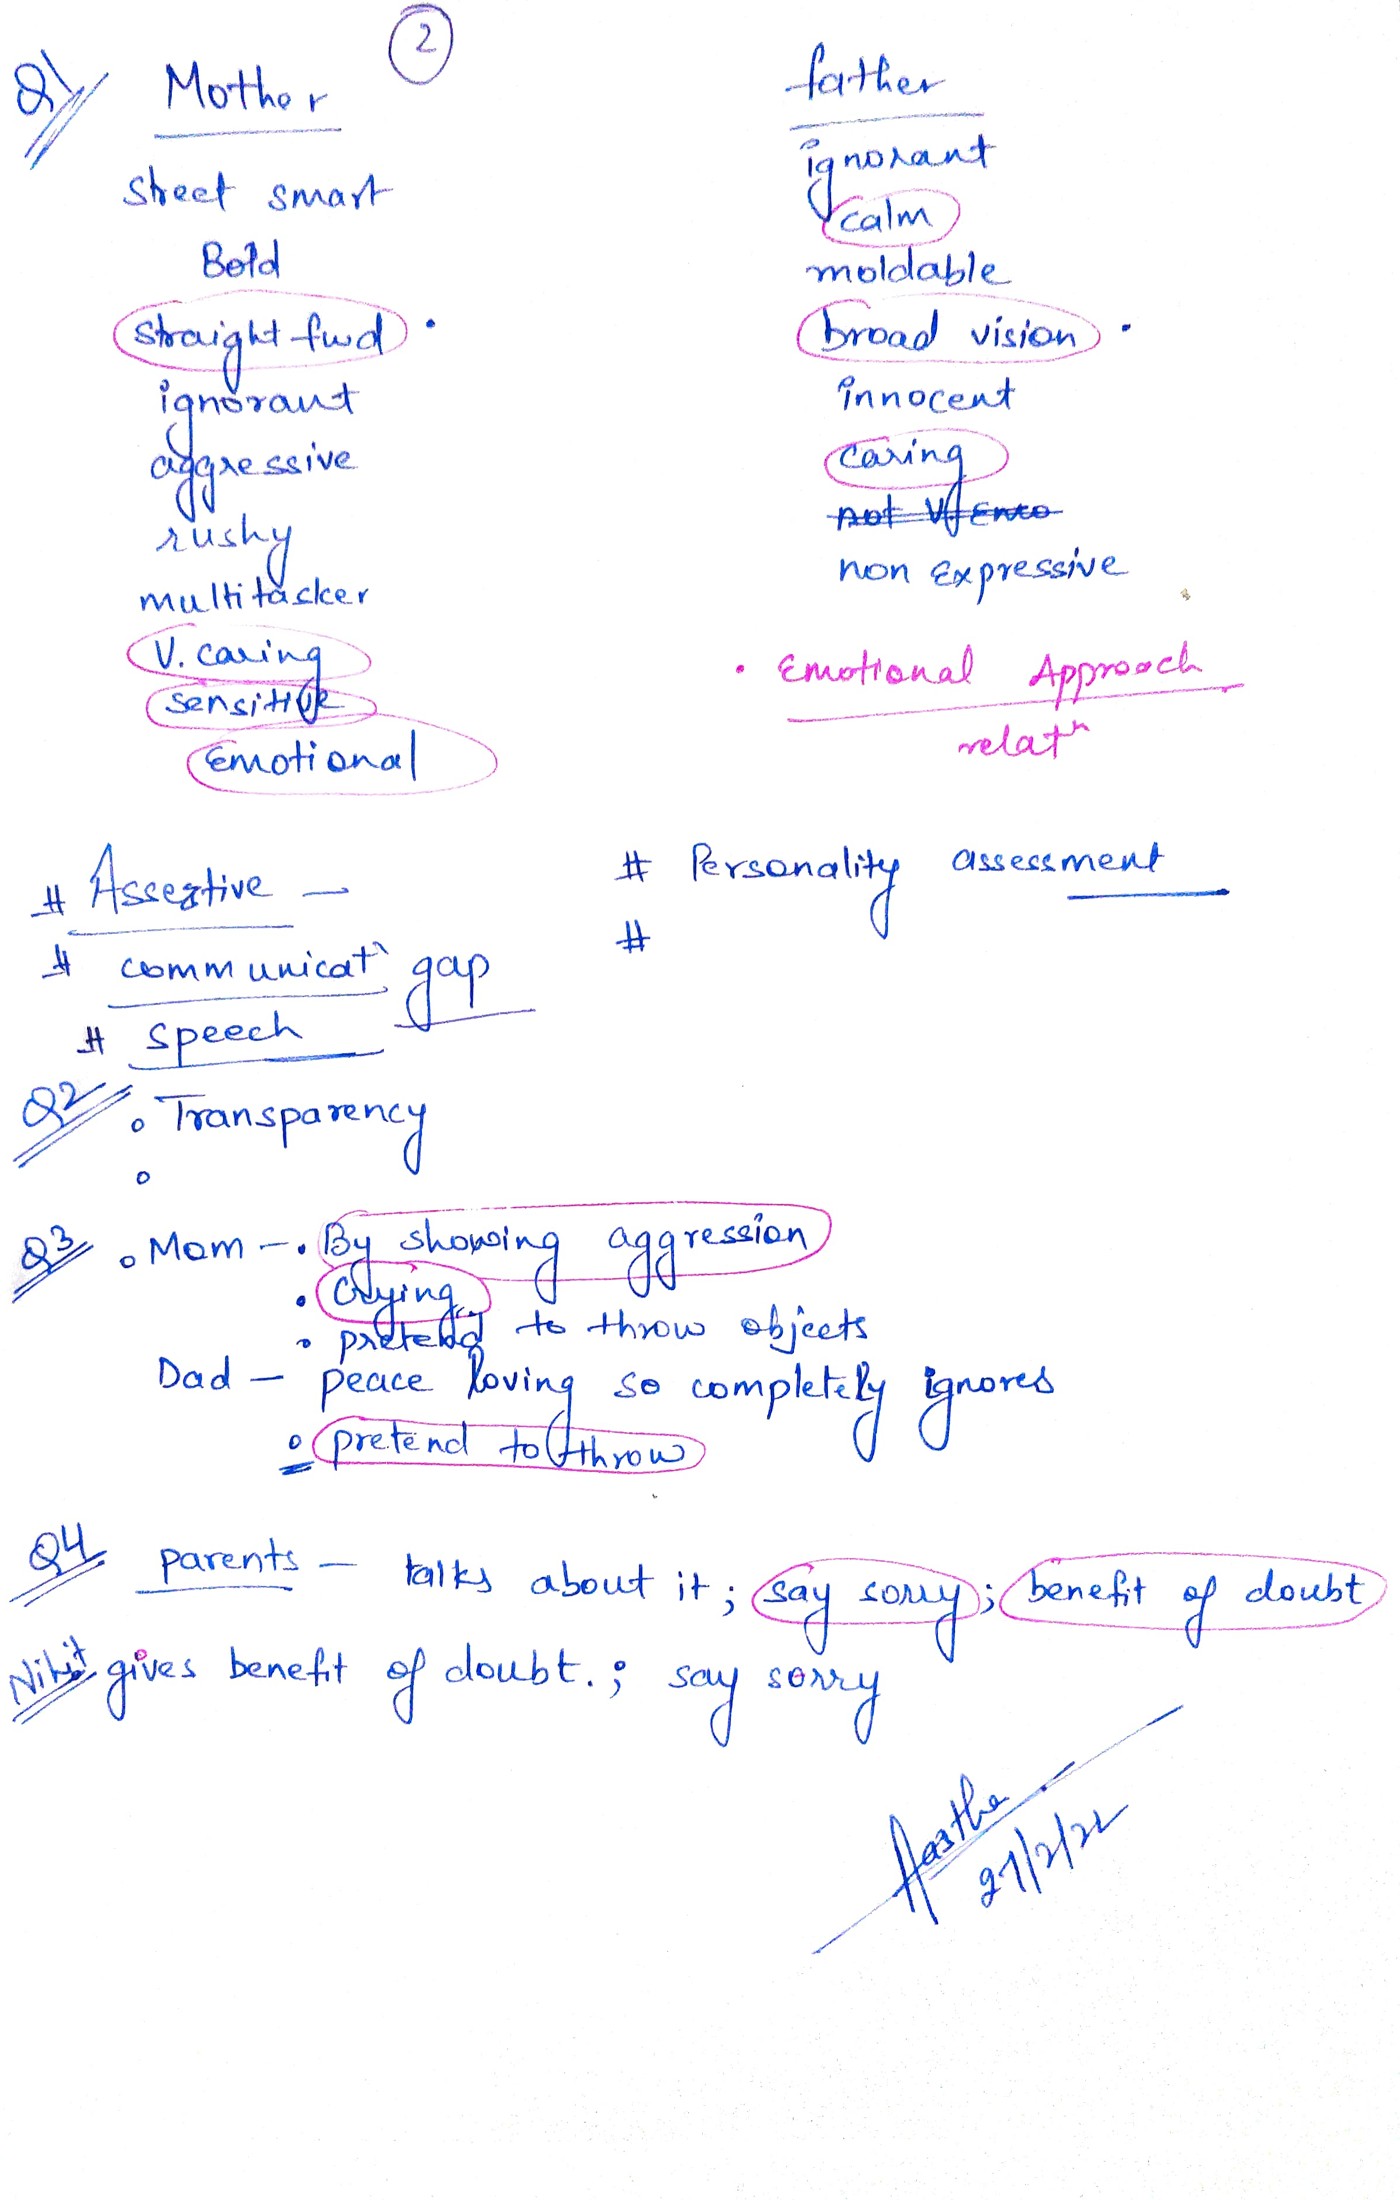 2
Q1 Mother
street smart
Bold
straight fwd .
ignorant
aggressive
rushy
multitasker
V. caring
sensitive
Emotional
father
ignorant
calm
moldable
broad vision .
innocent
caring
non Expressive
. Emotional Approach
relatn
# Assertive —
# communicat gap
# speech
# Personality assessment
#
Q2 • Transparency
•
Q3 • Mom — • By showing aggression
• Crying
• pretend to throw objects
Dad — peace loving so completely ignores
• pretend to throw
Q4 parents — talks about it; say sorry; benefit of doubt
gives benefit of doubt.; say sorry
Aastha
27/2/22